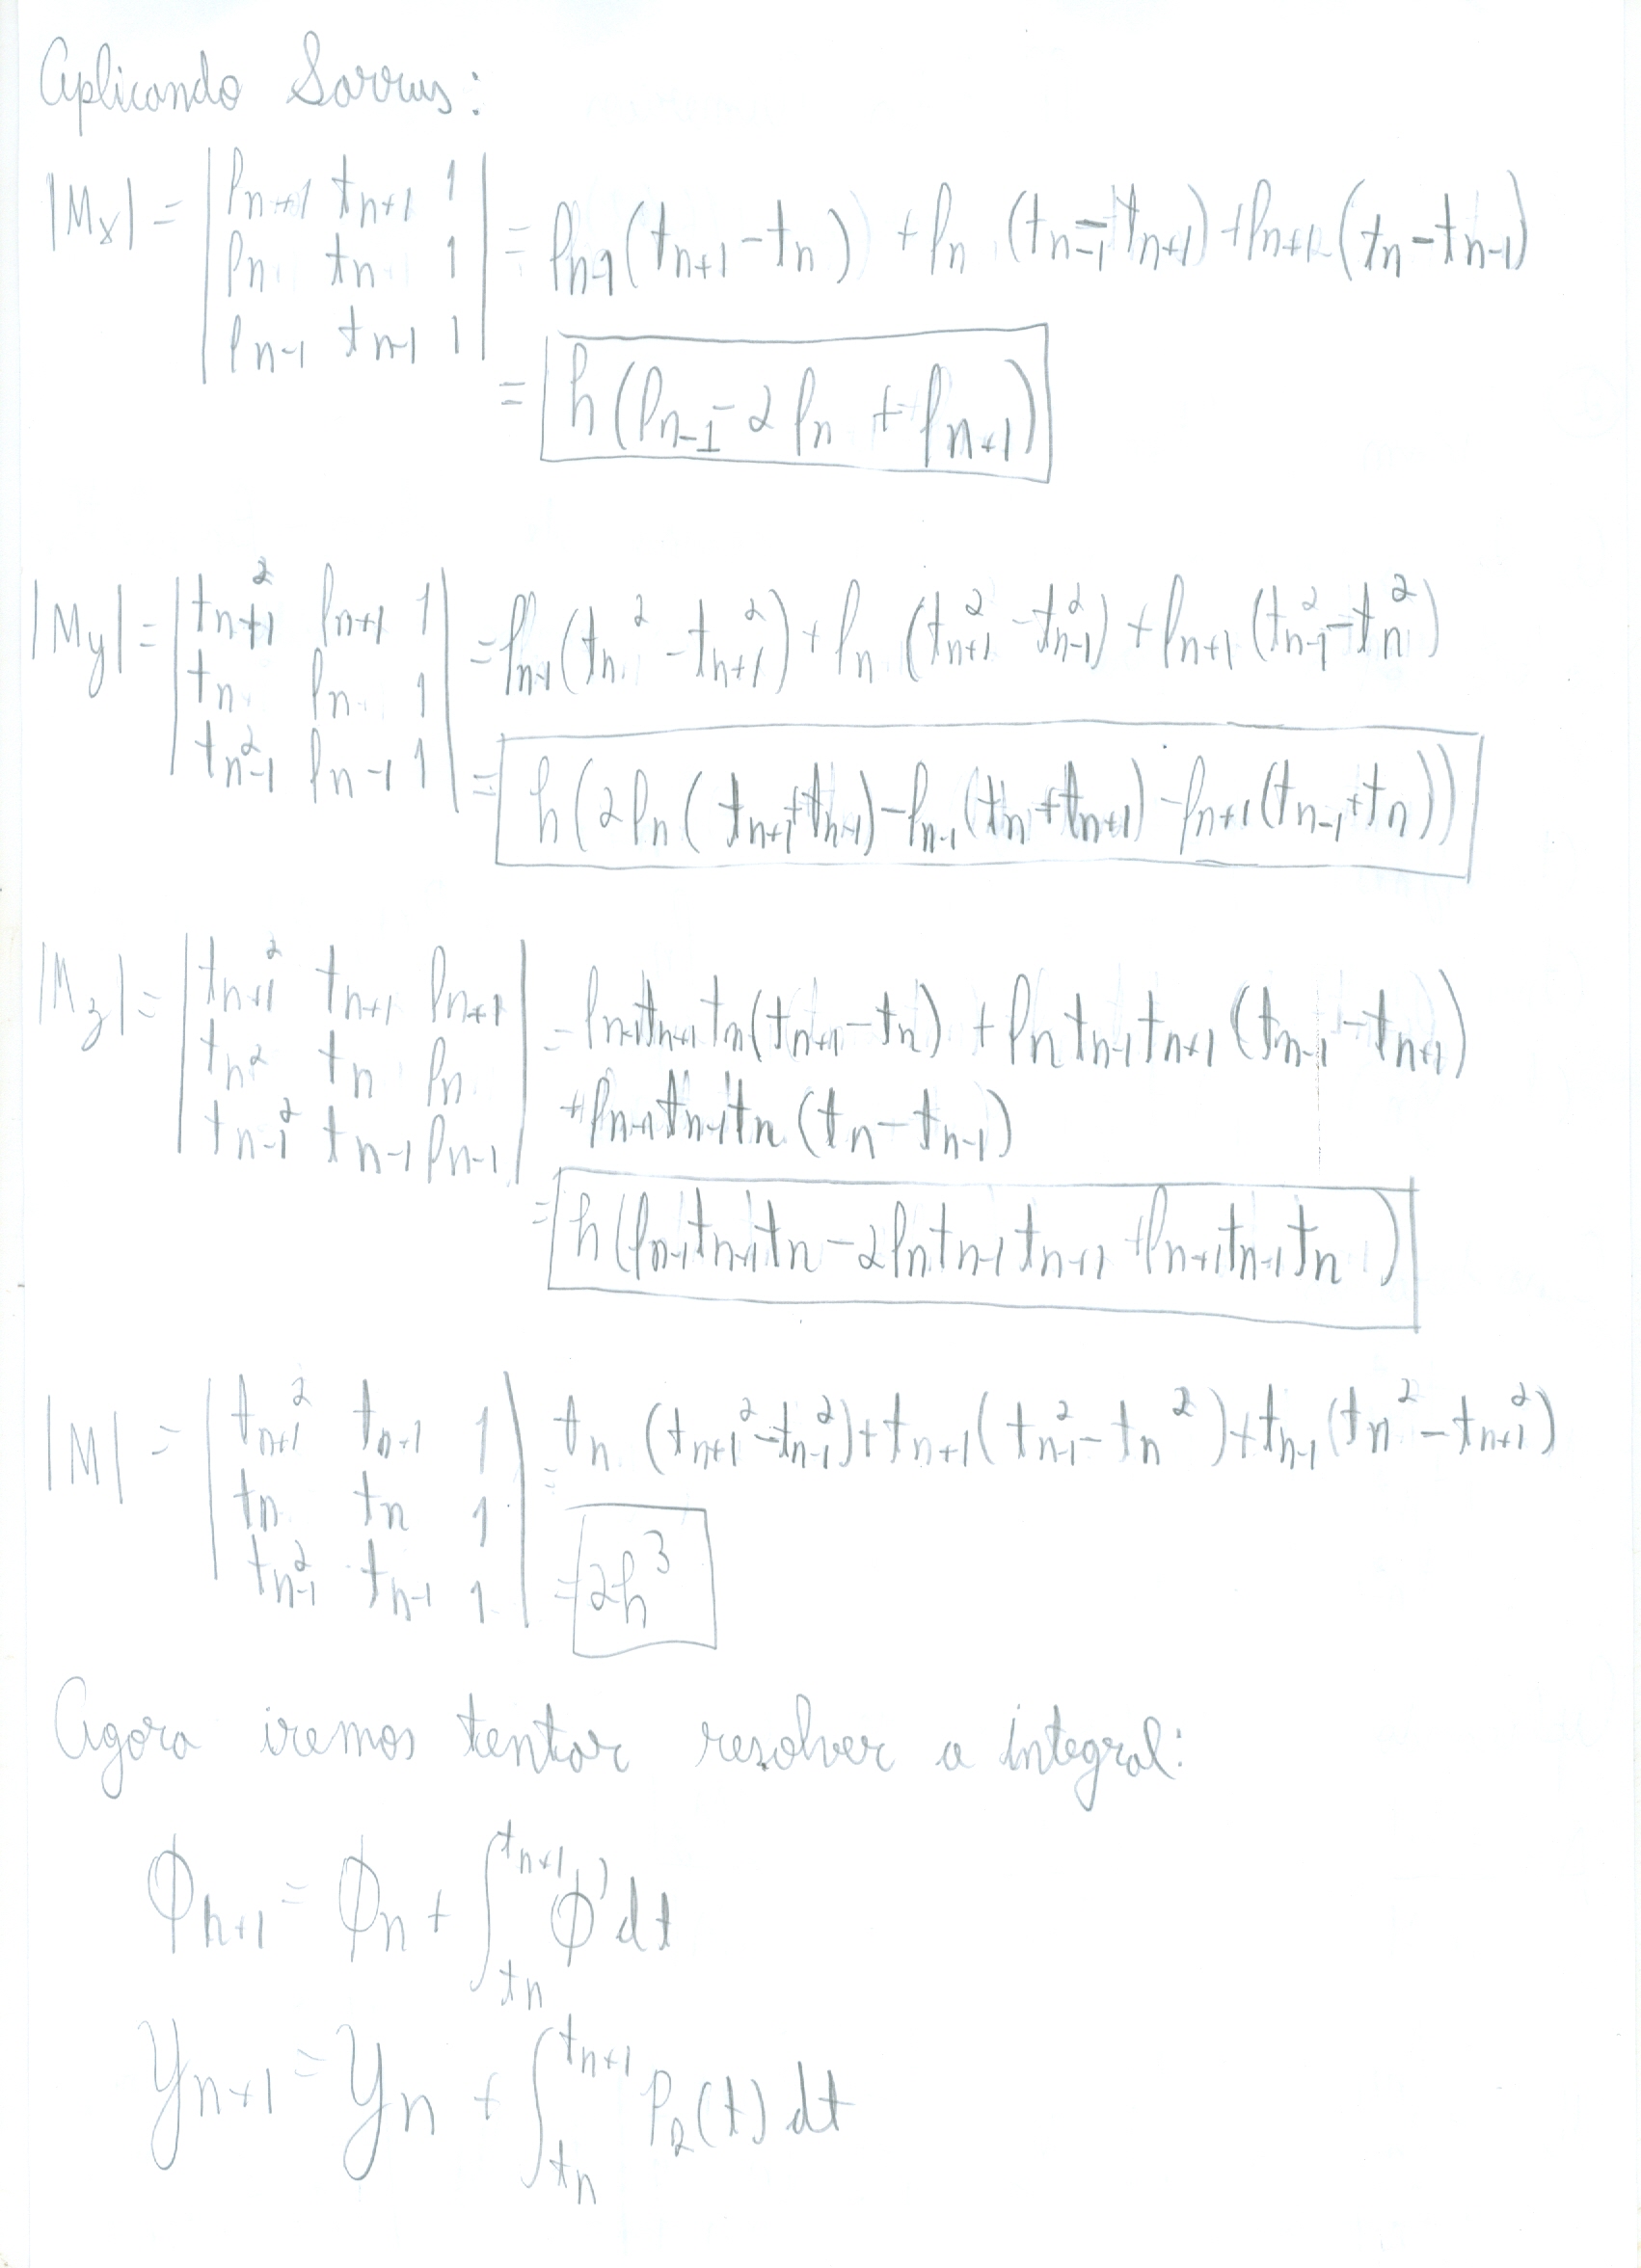 Aplicando Sarrus:
|Mx| = | fn+1 tn+1 1 | = fn-1(tn+1 - tn) + fn (tn-1 - tn+1) + fn+1 (tn - tn-1)
| fn tn 1 |
| fn-1 tn-1 1 |
= h(fn-1 - 2fn + fn+1)
|My| = | tn+1² fn+1 1 | = fn-1(tn² - tn+1²) + fn (tn+1² - tn-1²) + fn+1 (tn-1² - tn²)
| tn fn 1 |
| tn-1² fn-1 1 |
= h(2fn(tn+1+tn-1) - fn-1(tn+tn+1) - fn+1(tn-1+tn))
|Mz| = | tn+1² tn+1 fn+1 | = fn-1tn+1tn(tn+1 - tn) + fn tn-1tn+1 (tn-1 - tn+1)
| tn² tn fn |
| tn-1² tn-1 fn-1 |
+fn+1tn-1tn (tn - tn-1)
= h(fn-1tn+1tn - 2fntn-1tn+1 + fn+1tn-1tn)
|M| = | tn+1² tn+1 1 | = tn (tn+1² - tn-1²) + tn+1(tn-1² - tn²) + tn-1(tn² - tn+1²)
| tn tn 1 |
| tn-1² tn-1 1 |
= 2h³
Agora iremos tentar resolver a integral:
ϕn+1 = ϕn + ∫tn^tn+1 ϕ' dt
yn+1 = yn + ∫tn^tn+1 P2(t) dt